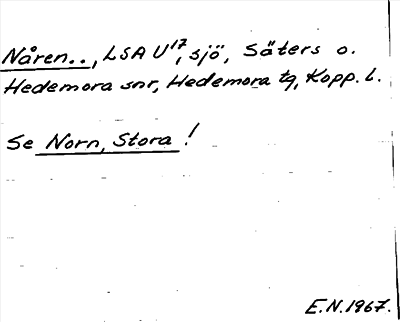 Nåren.., LSA U¹⁷, sjö, Säters o.
Hedemora snr, Hedemora tg, Kopp. l.
Se Norn, Stora!
E.N. 1967.